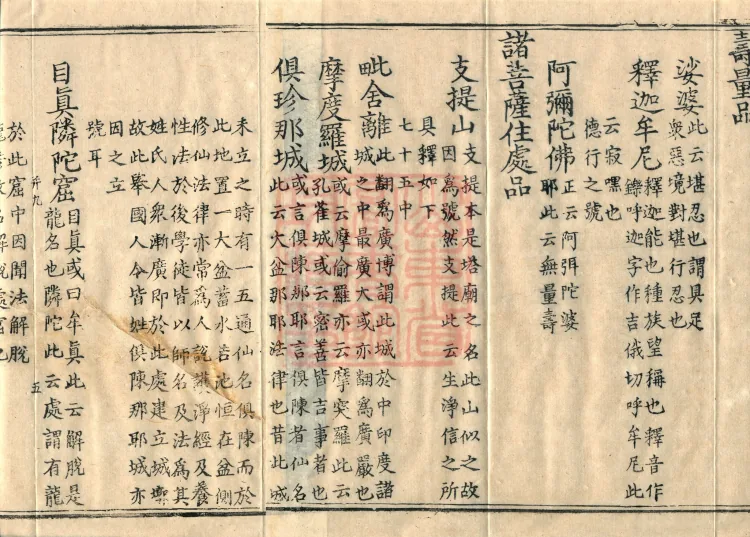 壽量品
娑婆此云堪忍也謂具足
衆惡境對堪行忍也
釋迦牟尼釋迦能也種族望稱也釋音作
鑠呼迦字作吉俄切呼牟尼此
云寂嘿也
德行之號
阿彌陀佛正云阿弭陀婆
耶此云無量壽
諸菩薩住處品
支提山支提本是塔廟之名此山似之故
因爲號然支提此云生淨信之所
具釋如下
七十五中
毗舍離此翻爲廣博謂此城於中印度諸
城之中最廣大或亦翻爲廣嚴也
摩度羅城或云摩偷羅亦云摩突羅此云
孔雀城或云密善皆吉事者也
俱珍那城或言俱陳那耶言俱陳者仙名
此云大盆那耶法律也昔此城
未立之時有一五通仙名俱陳而於
此地置一大盆蓄水若池恒在盆側
修仙法律亦常爲人說護淨經及養
性法於後學徒皆以師名及法爲其
姓氏人衆漸廣即於此處建立城壍
故此舉國人令皆姓俱陳那耶城亦
因之立
號耳
目真隣陀窟目真或曰牟真此云解脫是
龍名也隣陀此云處謂有龍
五
於此窟中因聞法解脫